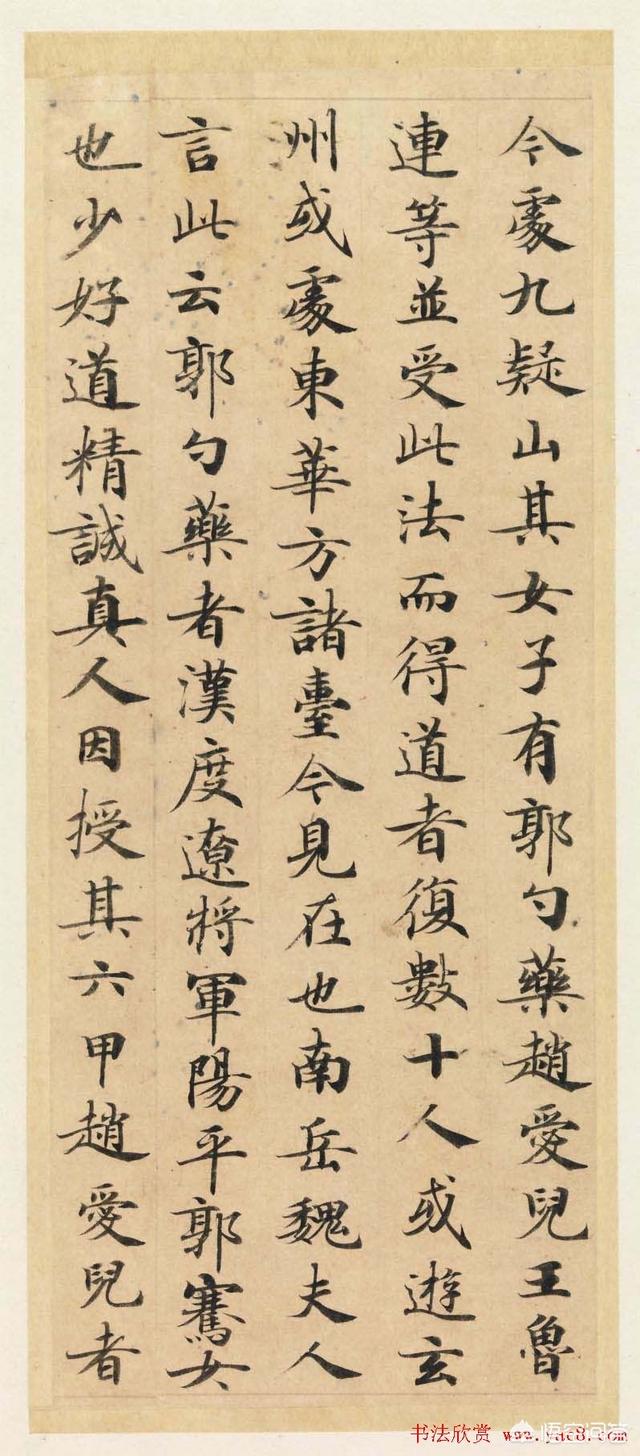 今處九疑山其女子有郭勺藥趙愛兒王魯
連等並受此法而得道者復數十人或遊玄
州或處東華方諸臺今見在也南岳魏夫人
言此云郭勺藥者漢度遼將軍陽平郭騫女
也少好道精誠真人因授其六甲趙愛兒者
书法欣赏 www.yac8.com
悟空问答